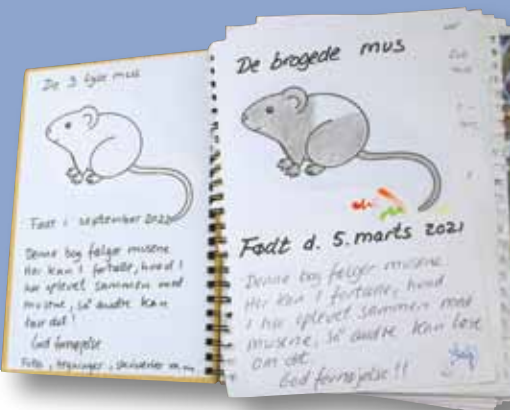 De 3 lyse mus
Født i september 2022
Denne bog følger musene
Her kan I fortælle, hvad I
har oplevet sammen med
musene, så andre kan
læse det!
God fornøjelse
Foto, tegninger, skriverier m.m.
De brogede mus
Født d. 5. marts 2021
Denne bog følger musene.
Her kan I fortælle, hvad
I har oplevet sammen med
musene, så andre kan læse
om det.
God fornøjelse!!